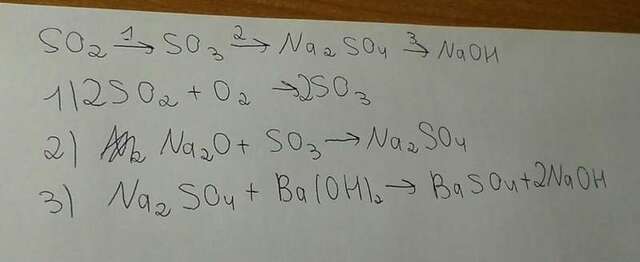 SO₂ →¹ SO₃ →² Na₂SO₄ →³ NaOH
1) 2SO₂ + O₂ → 2SO₃
2) Na₂O + SO₃ → Na₂SO₄
3) Na₂SO₄ + Ba(OH)₂ → BaSO₄ + 2NaOH